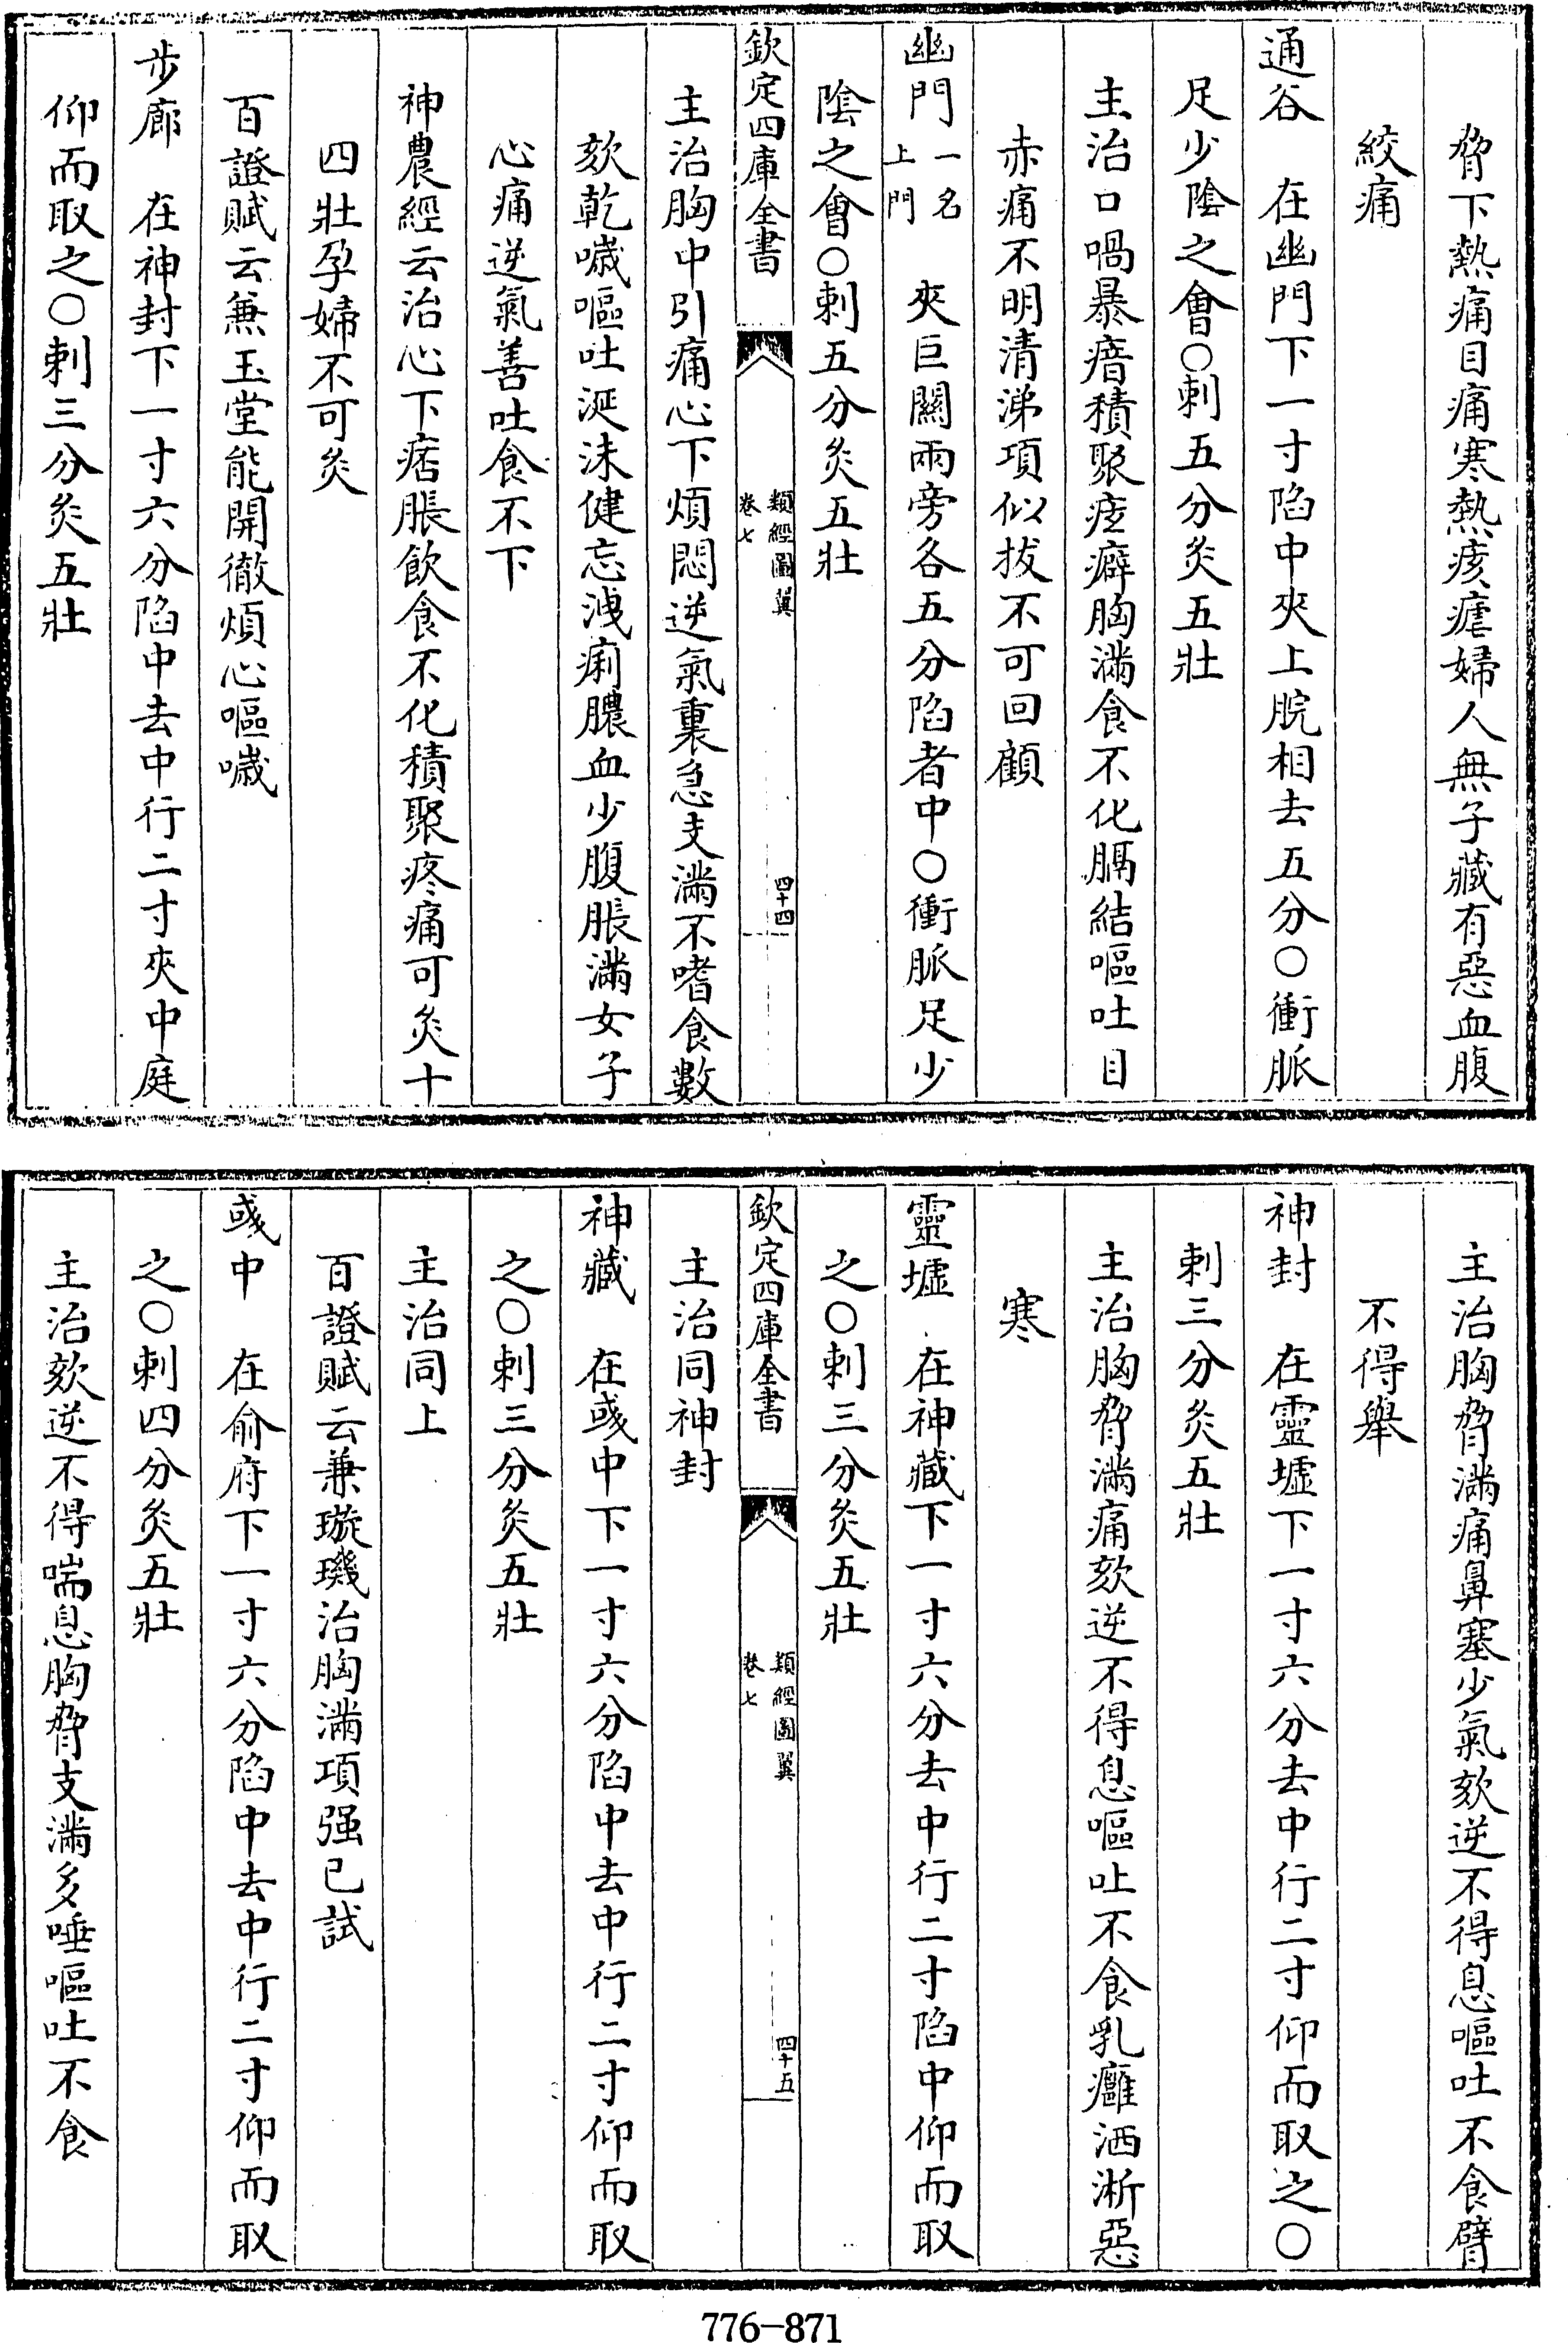 脅下熱痛目痛寒熱痎瘧婦人無子藏有惡血腹
絞痛
通谷　在幽門下一寸陷中夾上脘相去五分〇衝脈
足少陰之會〇刺五分灸五壯
主治口喎暴瘖積聚痃癖胸滿食不化膈結嘔吐目
赤痛不明清涕項似拔不可回顧
幽門一名上門　夾巨闕兩旁各五分陷者中〇衝脈足少
陰之會〇刺五分灸五壯
欽定四庫全書
類經圖翼
卷七
四十四
主治胸中引痛心下煩悶逆氣裏急支滿不嗜食數
欬乾噦嘔吐涎沫健忘洩痢膿血少腹脹滿女子
心痛逆氣善吐食不下
神農經云治心下痞脹飲食不化積聚疼痛可灸十
四壯孕婦不可灸
百證賦云兼玉堂能開徹煩心嘔噦
步廊　在神封下一寸六分陷中去中行二寸夾中庭
仰而取之〇刺三分灸五壯
主治胸脅滿痛鼻塞少氣欬逆不得息嘔吐不食臂
不得舉
神封　在靈墟下一寸六分去中行二寸仰而取之〇
刺三分灸五壯
主治胸脅滿痛欬逆不得息嘔吐不食乳癰洒淅惡
寒
靈墟　在神藏下一寸六分去中行二寸陷中仰而取
之〇刺三分灸五壯
欽定四庫全書
類經圖翼
卷七
四十五
主治同神封
神藏　在彧中下一寸六分陷中去中行二寸仰而取
之〇刺三分灸五壯
主治同上
百證賦云兼璇璣治胸滿項强已試
彧中　在俞府下一寸六分陷中去中行二寸仰而取
之〇刺四分灸五壯
主治欬逆不得喘息胸脅支滿多唾嘔吐不食
776-871